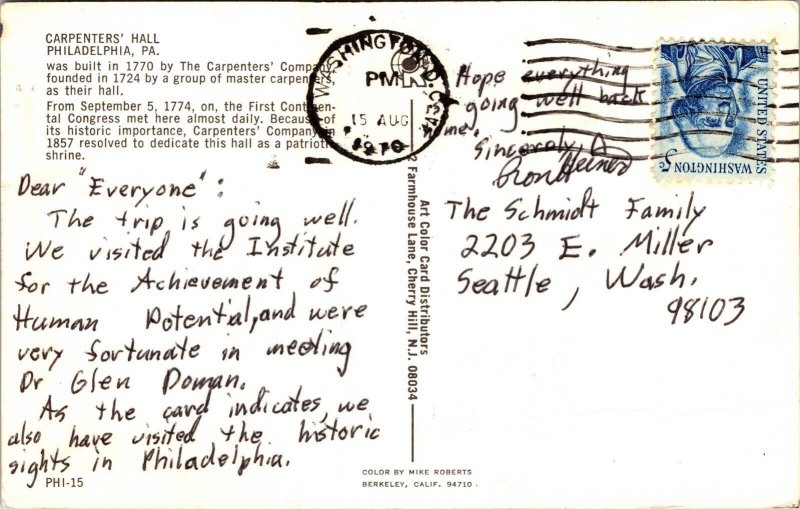 CARPENTERS' HALL
PHILADELPHIA, PA.
was built in 1770 by The Carpenters' Company
founded in 1724 by a group of master carpenters,
as their hall.
From September 5, 1774, on, the First Continen-
tal Congress met here almost daily. Because of
its historic importance, Carpenters' Company in
1857 resolved to dedicate this hall as a patriotic
shrine.
Dear "Everyone":
The trip is going well.
We visited the Institute
for the Achievement of
Human Potential, and were
very fortunate in meeting
Dr Glen Doman.
As the card indicates, we
also have visited the historic
sights in Philadelphia.
PHI-15
WASHINGTON, D.C.
PM
15 AUG
1970
Hope everything
going well back
home.
Sincerely,
Art Color Card Distributors
2 Farmhouse Lane, Cherry Hill, N.J. 08034
COLOR BY MIKE ROBERTS
BERKELEY, CALIF. 94710
UNITED STATES
WASHINGTON 5c
The Schmidt Family
2203 E. Miller
Seattle, Wash.
98103